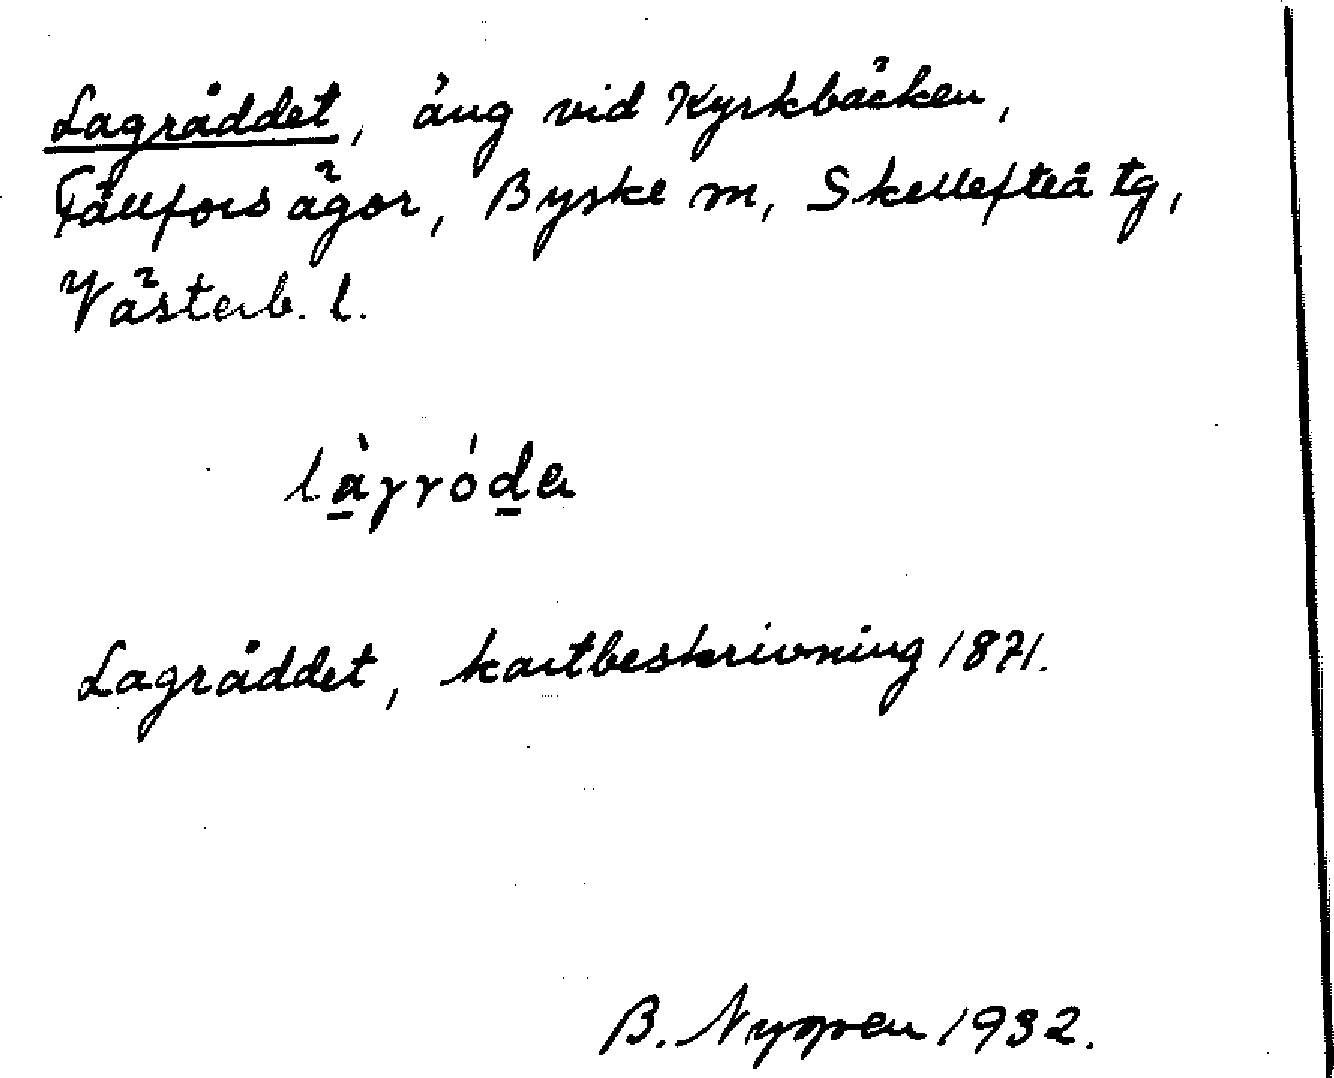 Lagråddet, äng vid Kyrkbäcken,
Fällfors ägor, Byske m, Skellefteå tg,
Västerb. l.
làγróda
Lagråddet, kartbeskrivning 1871.
B. 1932.